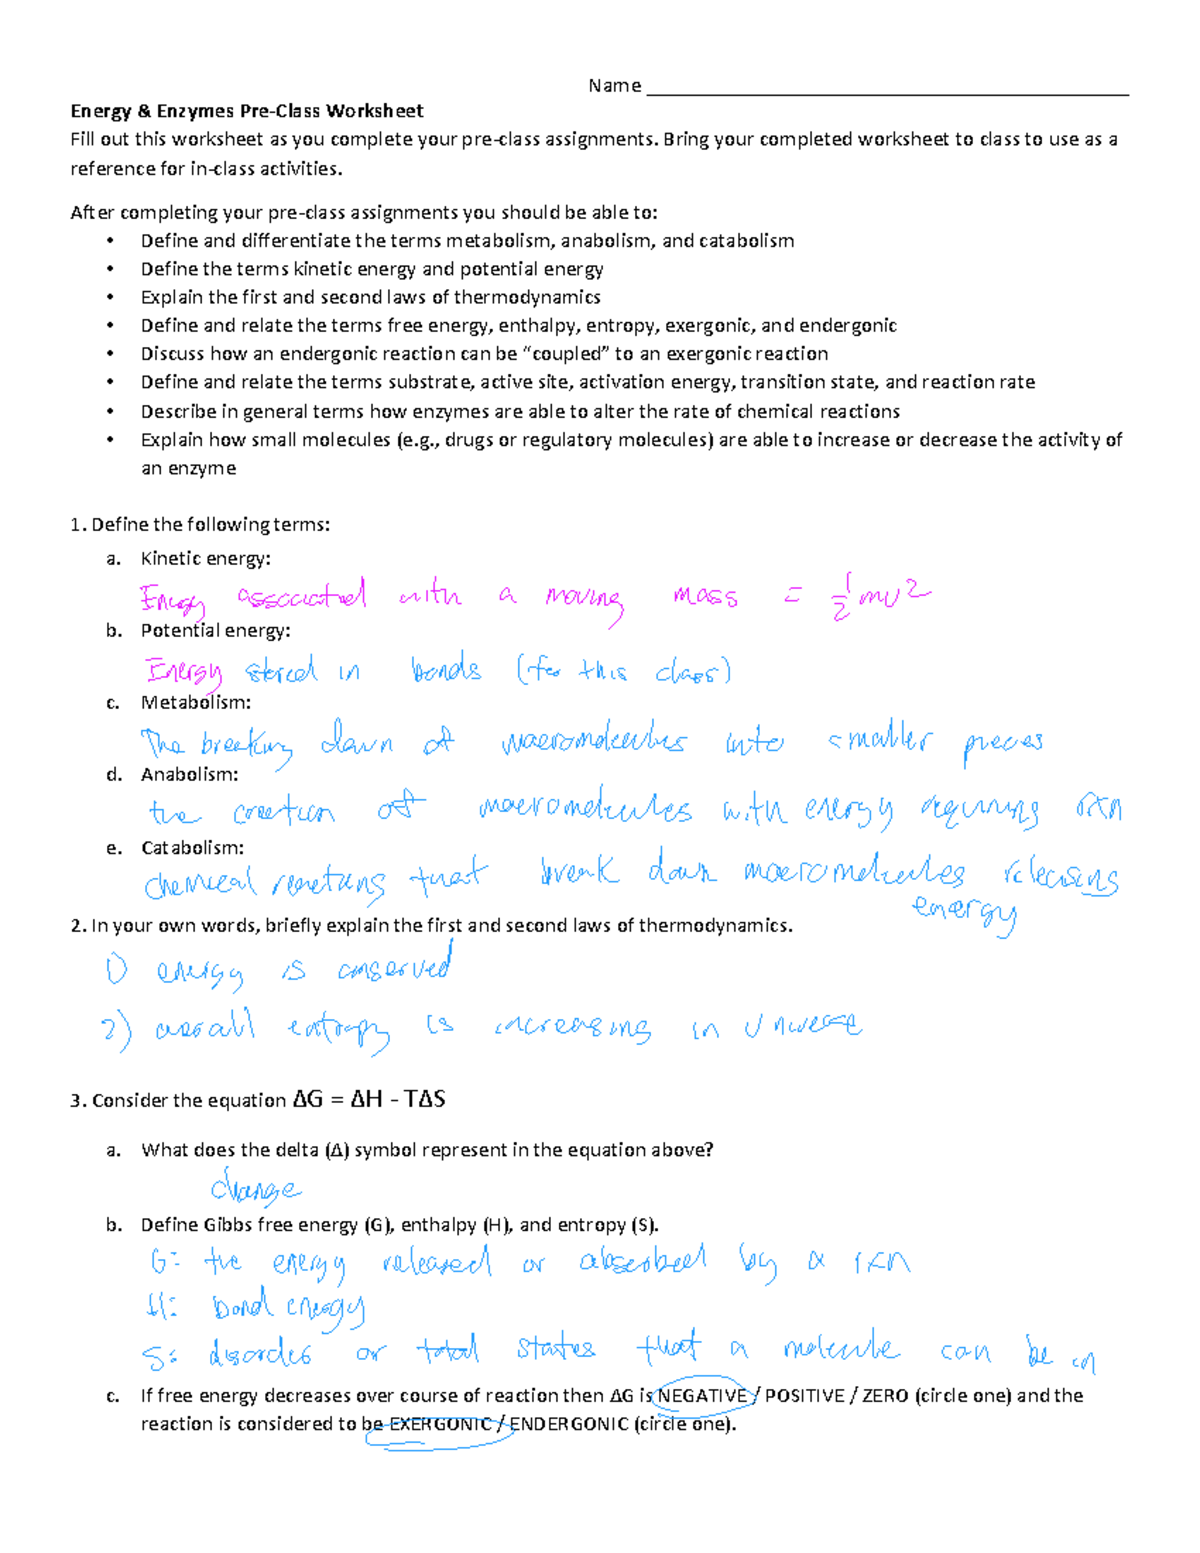 Name
Energy & Enzymes Pre-Class Worksheet
Fill out this worksheet as you complete your pre-class assignments. Bring your completed worksheet to class to use as a
reference for in-class activities.
After completing your pre-class assignments you should be able to:
• Define and differentiate the terms metabolism, anabolism, and catabolism
• Define the terms kinetic energy and potential energy
• Explain the first and second laws of thermodynamics
• Define and relate the terms free energy, enthalpy, entropy, exergonic, and endergonic
• Discuss how an endergonic reaction can be “coupled” to an exergonic reaction
• Define and relate the terms substrate, active site, activation energy, transition state, and reaction rate
• Describe in general terms how enzymes are able to alter the rate of chemical reactions
• Explain how small molecules (e.g., drugs or regulatory molecules) are able to increase or decrease the activity of
an enzyme
1. Define the following terms:
a. Kinetic energy:
Energy associated with a moving mass = 1/2 mv²
b. Potential energy:
Energy stored in bonds (for this class)
c. Metabolism:
The breaking down of macromolecules into smaller pieces
d. Anabolism:
the creation of macromolecules with energy requiring rxn
e. Catabolism:
chemical reactions that break down macromolecules releasing
energy
2. In your own words, briefly explain the first and second laws of thermodynamics.
1) energy is conserved
2) overall entropy is increasing in universe
3. Consider the equation ΔG = ΔH - TΔS
a. What does the delta (Δ) symbol represent in the equation above?
change
b. Define Gibbs free energy (G), enthalpy (H), and entropy (S).
G: the energy released or absorbed by a rxn
H: bond energy
S: disorder or total states that a molecule can be in
c. If free energy decreases over course of reaction then ΔG is NEGATIVE / POSITIVE / ZERO (circle one) and the
reaction is considered to be EXERGONIC / ENDERGONIC (circle one).